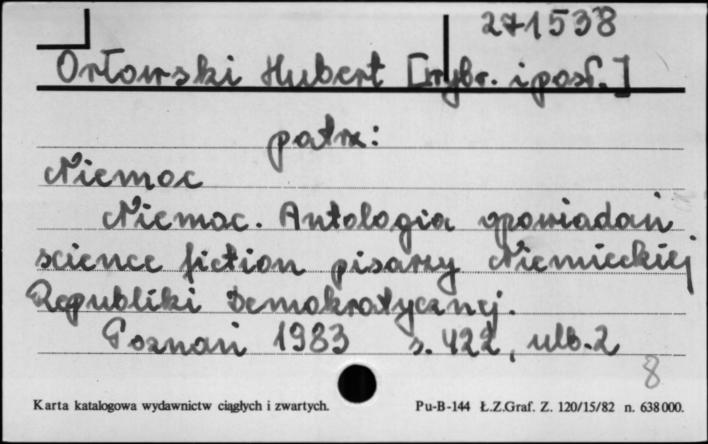 271538
Orłowski Hubert [wybr. i posł.]
patrz:
Niemoc
Niemoc. Antologia opowiadań
science fiction pisarzy Niemieckiej
Republiki Demokratycznej.
Poznań 1983 s. 422, ulb. 2
8
Karta katalogowa wydawnictw ciągłych i zwartych. Pu-B-144 Ł.Z.Graf. Z. 120/15/82 n. 638000.